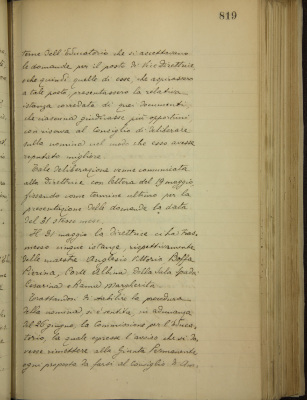 819
terne dell'Educatorio che si accettassero
le domande per il posto di Vice Direttrice,
che quindi quelle di esse, che aspirassero
a tale posto, presentassero la relativa
istanza corredata di quei documenti,
che ciascuna giudicasse più opportuni
con riserva al Consiglio di deliberare
sulla nomina nel modo che esso avesse
reputato migliore.
Tale deliberazione venne comunicata
alla Direttrice con lettera del 19 maggio,
fissando come termine ultimo per la
presentazione delle domande la data
del 31 stesso mese.
Il 31 maggio la Direttrice ci ha tras-
messo cinque istanze, rispettivamente
delle maestre Vittoria
Pierina, Conte Albina, Della Sala Spada
Cesarina e Margherita.
Trattandosi di stabilire la procedura
della nomina, si è sentita, in adunanza
del 26 giugno, la Commissione per l'Educa-
torio, la quale espresse l'avviso che si do-
vesse rimettere alla Giunta Permanente
ogni proposta da farsi al Consiglio di Am-